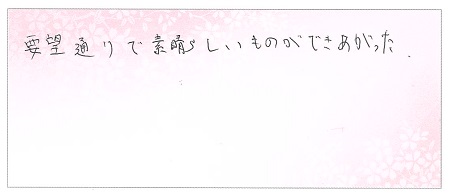 要望通りで素晴らしいものができあがった.